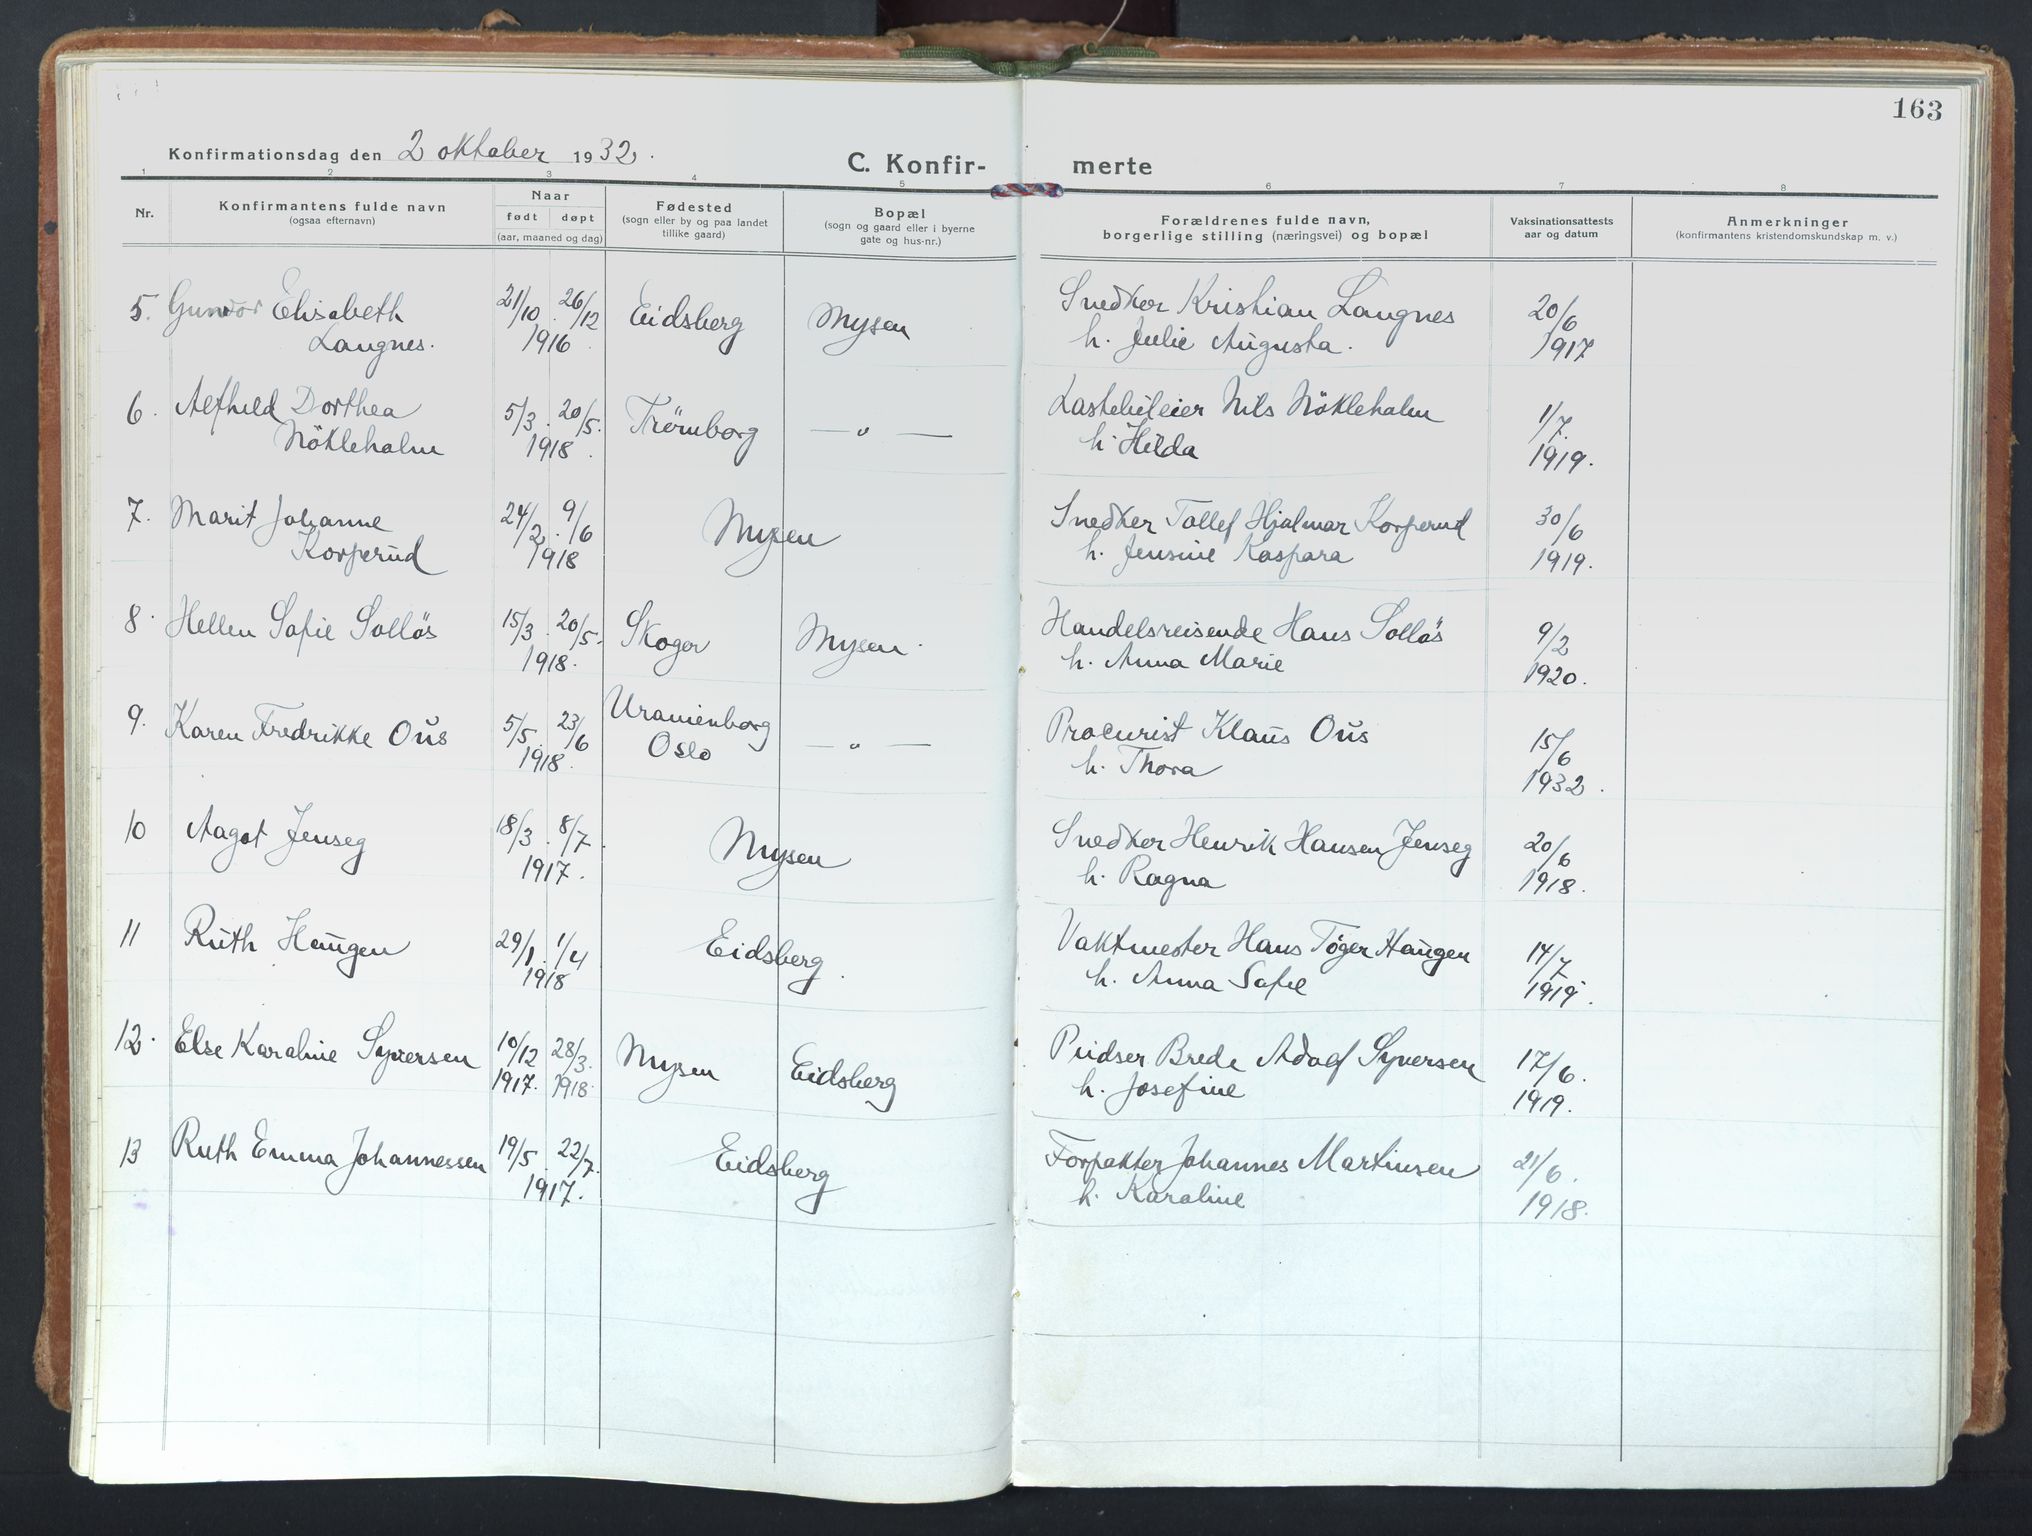 163
Konfirmationsdag den 2 oktober 1932.
C. Konfir- merte
1 2 3 4 5 6 7 8
Nr.
Konfirmantens fulde navn
(ogsaa efternavn)
Naar
født døpt
(aar, maaned og dag)
Fødested
(sogn eller by og paa landet
tillike gaard)
Bopæl
(sogn og gaard eller i byerne
gate og hus-nr.)
Forældrenes fulde navn,
borgerlige stilling (næringsvei) og bopæl
Vaksinationsattests
aar og datum
Anmerkninger
(konfirmantens kristendomskundskap m. v.)
5. Gunvor Elisabeth 21/10 . 26/12 Eidsberg Mysen Snedker Kristian Langnes 20/6
Langnes. 1916. h. Julie Augusta. 1917
6. Alfhild Dorthea 5/3 . 20/5. Trømborg — " — Lastebileier Nils Nökleholm 1/7.
Nökleholm 1918. h. Hilda 1919.
7. Marit Johanne 24/2 . 9/6 Mysen Snedker Tollef Hjalmar Korperud 30/6
Korperud 1918 h. Jensine Kaspara 1919.
8. Hellen Sofie Sollös 15/3 . 20/5. Skoger Mysen. Handelsreisende Hans Sollös 9/2
1918. h. Anna Marie 1920.
9. Karen Fredrikke Ous 5/5. 23/6 Uranienborg — " — Procurist Klaus Ous 15/6
1918. Oslo h. Thora 1932.
10 Aagot Jenseg 18/3 . 8/7. Mysen Snedker Henrik Hansen Jenseg 20/6
1917. h. Ragna 1918.
11 Ruth Haugen 29/1 . 1/4 Eidsberg. Vaktmester Hans Tøger Haugen 14/7
1918 h. Anna Sofie 1919.
12. Else Karoline Syversen 10/12 28/3. Mysen Eidsberg Pudser Brede Adolf Syversen 17/6.
1917. 1918. h. Josefine 1919.
13 Ruth Emma Johannessen 19/5 . 22/7. Eidsberg Forpakter Johannes Martinsen 21/6.
1917. h. Karoline 1918.